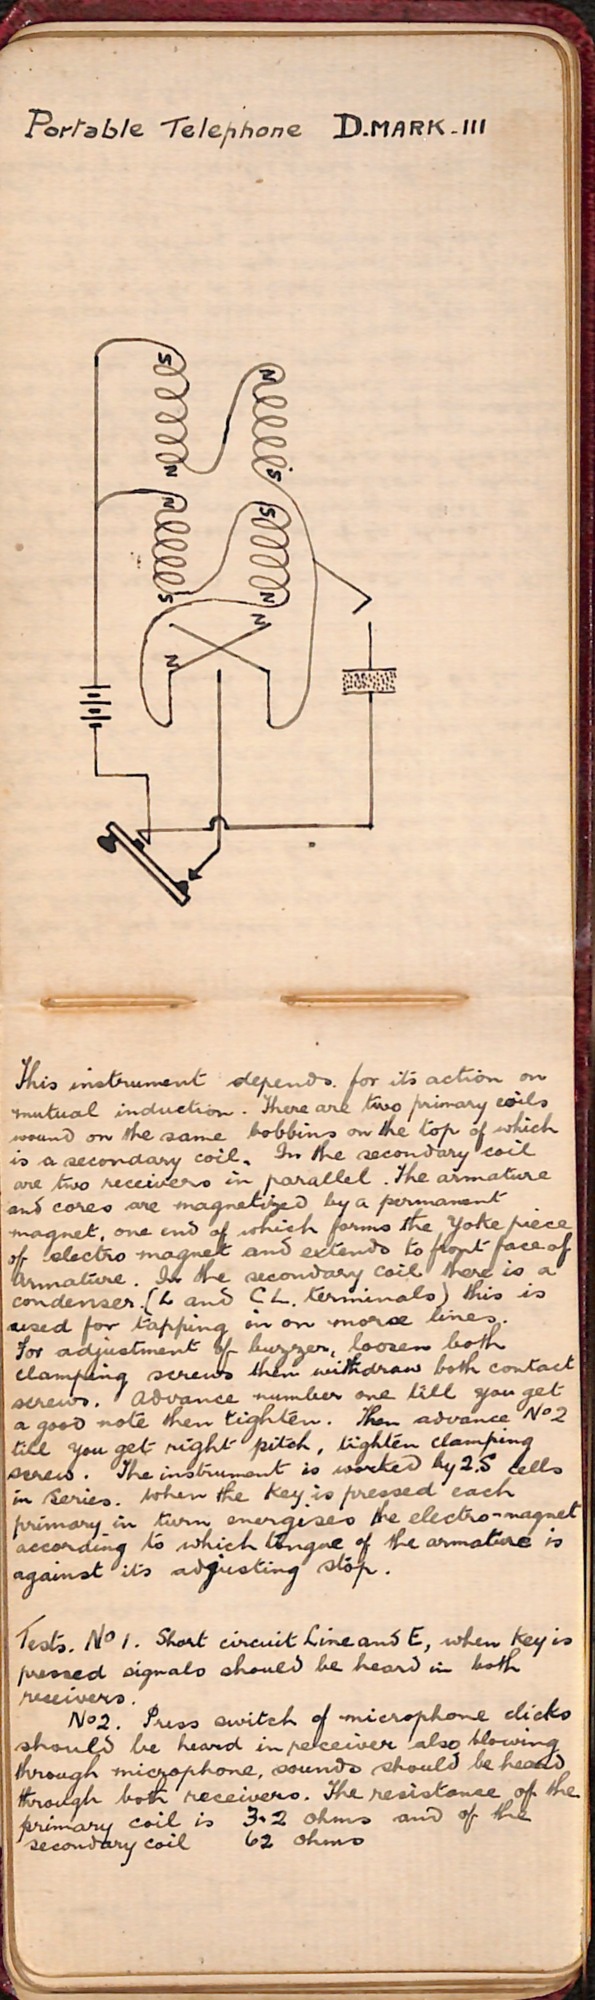 Portable Telephone D.MARK.III
S
N
N
S
N
S
S
N
N
N
This instrument depends for its action on
mutual induction. There are two primary coils
wound on the same bobbins on the top of which
is a secondary coil. In the secondary coil
are two receivers in parallel. The armature
and cores are magnetized by a permanent
magnet, one end of which forms the Yoke piece
of electro magnet and extends to front face of
armature. In the secondary coil there is a
condenser. (L and C L. terminals) this is
used for tapping in on morse lines.
For adjustment of buzzer, loosen both
clamping screws then withdraw both contact
screws. Advance number one till you get
a good note then tighten. Then advance No 2
till you get right pitch, tighten clamping
screw. The instrument is worked by 2.S cells
in series. When the key is pressed each
primary in turn energises the electro-magnet
according to which tongue of the armature is
against its adjusting stop.
Tests. No 1. Short circuit Line and E, when key is
pressed signals should be heard in both
receivers.
No2. Press switch of microphone clicks
should be heard in receiver also blowing
through microphone, sounds should be heard
through both receivers. The resistance of the
primary coil is 3.2 ohms and of the
secondary coil 62 ohms